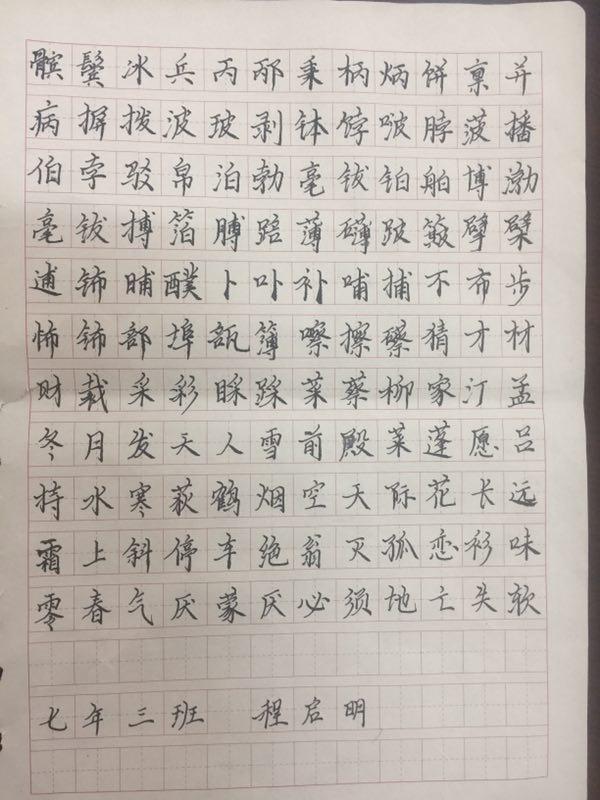 髌鬓冰兵丙邴秉柄炳饼禀并
病摒拨波玻剥钵饽啵脖菠播
伯孛驳帛泊勃亳钹铂舶博渤
亳钹搏箔膊踣薄礴跛簸擘檗
逋钸晡醭卜卟补哺捕不布步
怖钸部埠瓿簿嚓擦礤猜才材
财裁采彩睬踩菜蔡柳家汀孟
冬月发天人雪前殿菜蓬愿吕
持水寒荻鹤烟空天际花长远
霜上斜停车绝翁灭孤恋衫味
零春气厌蒙厌必须地亡失软
七年三班 程启明